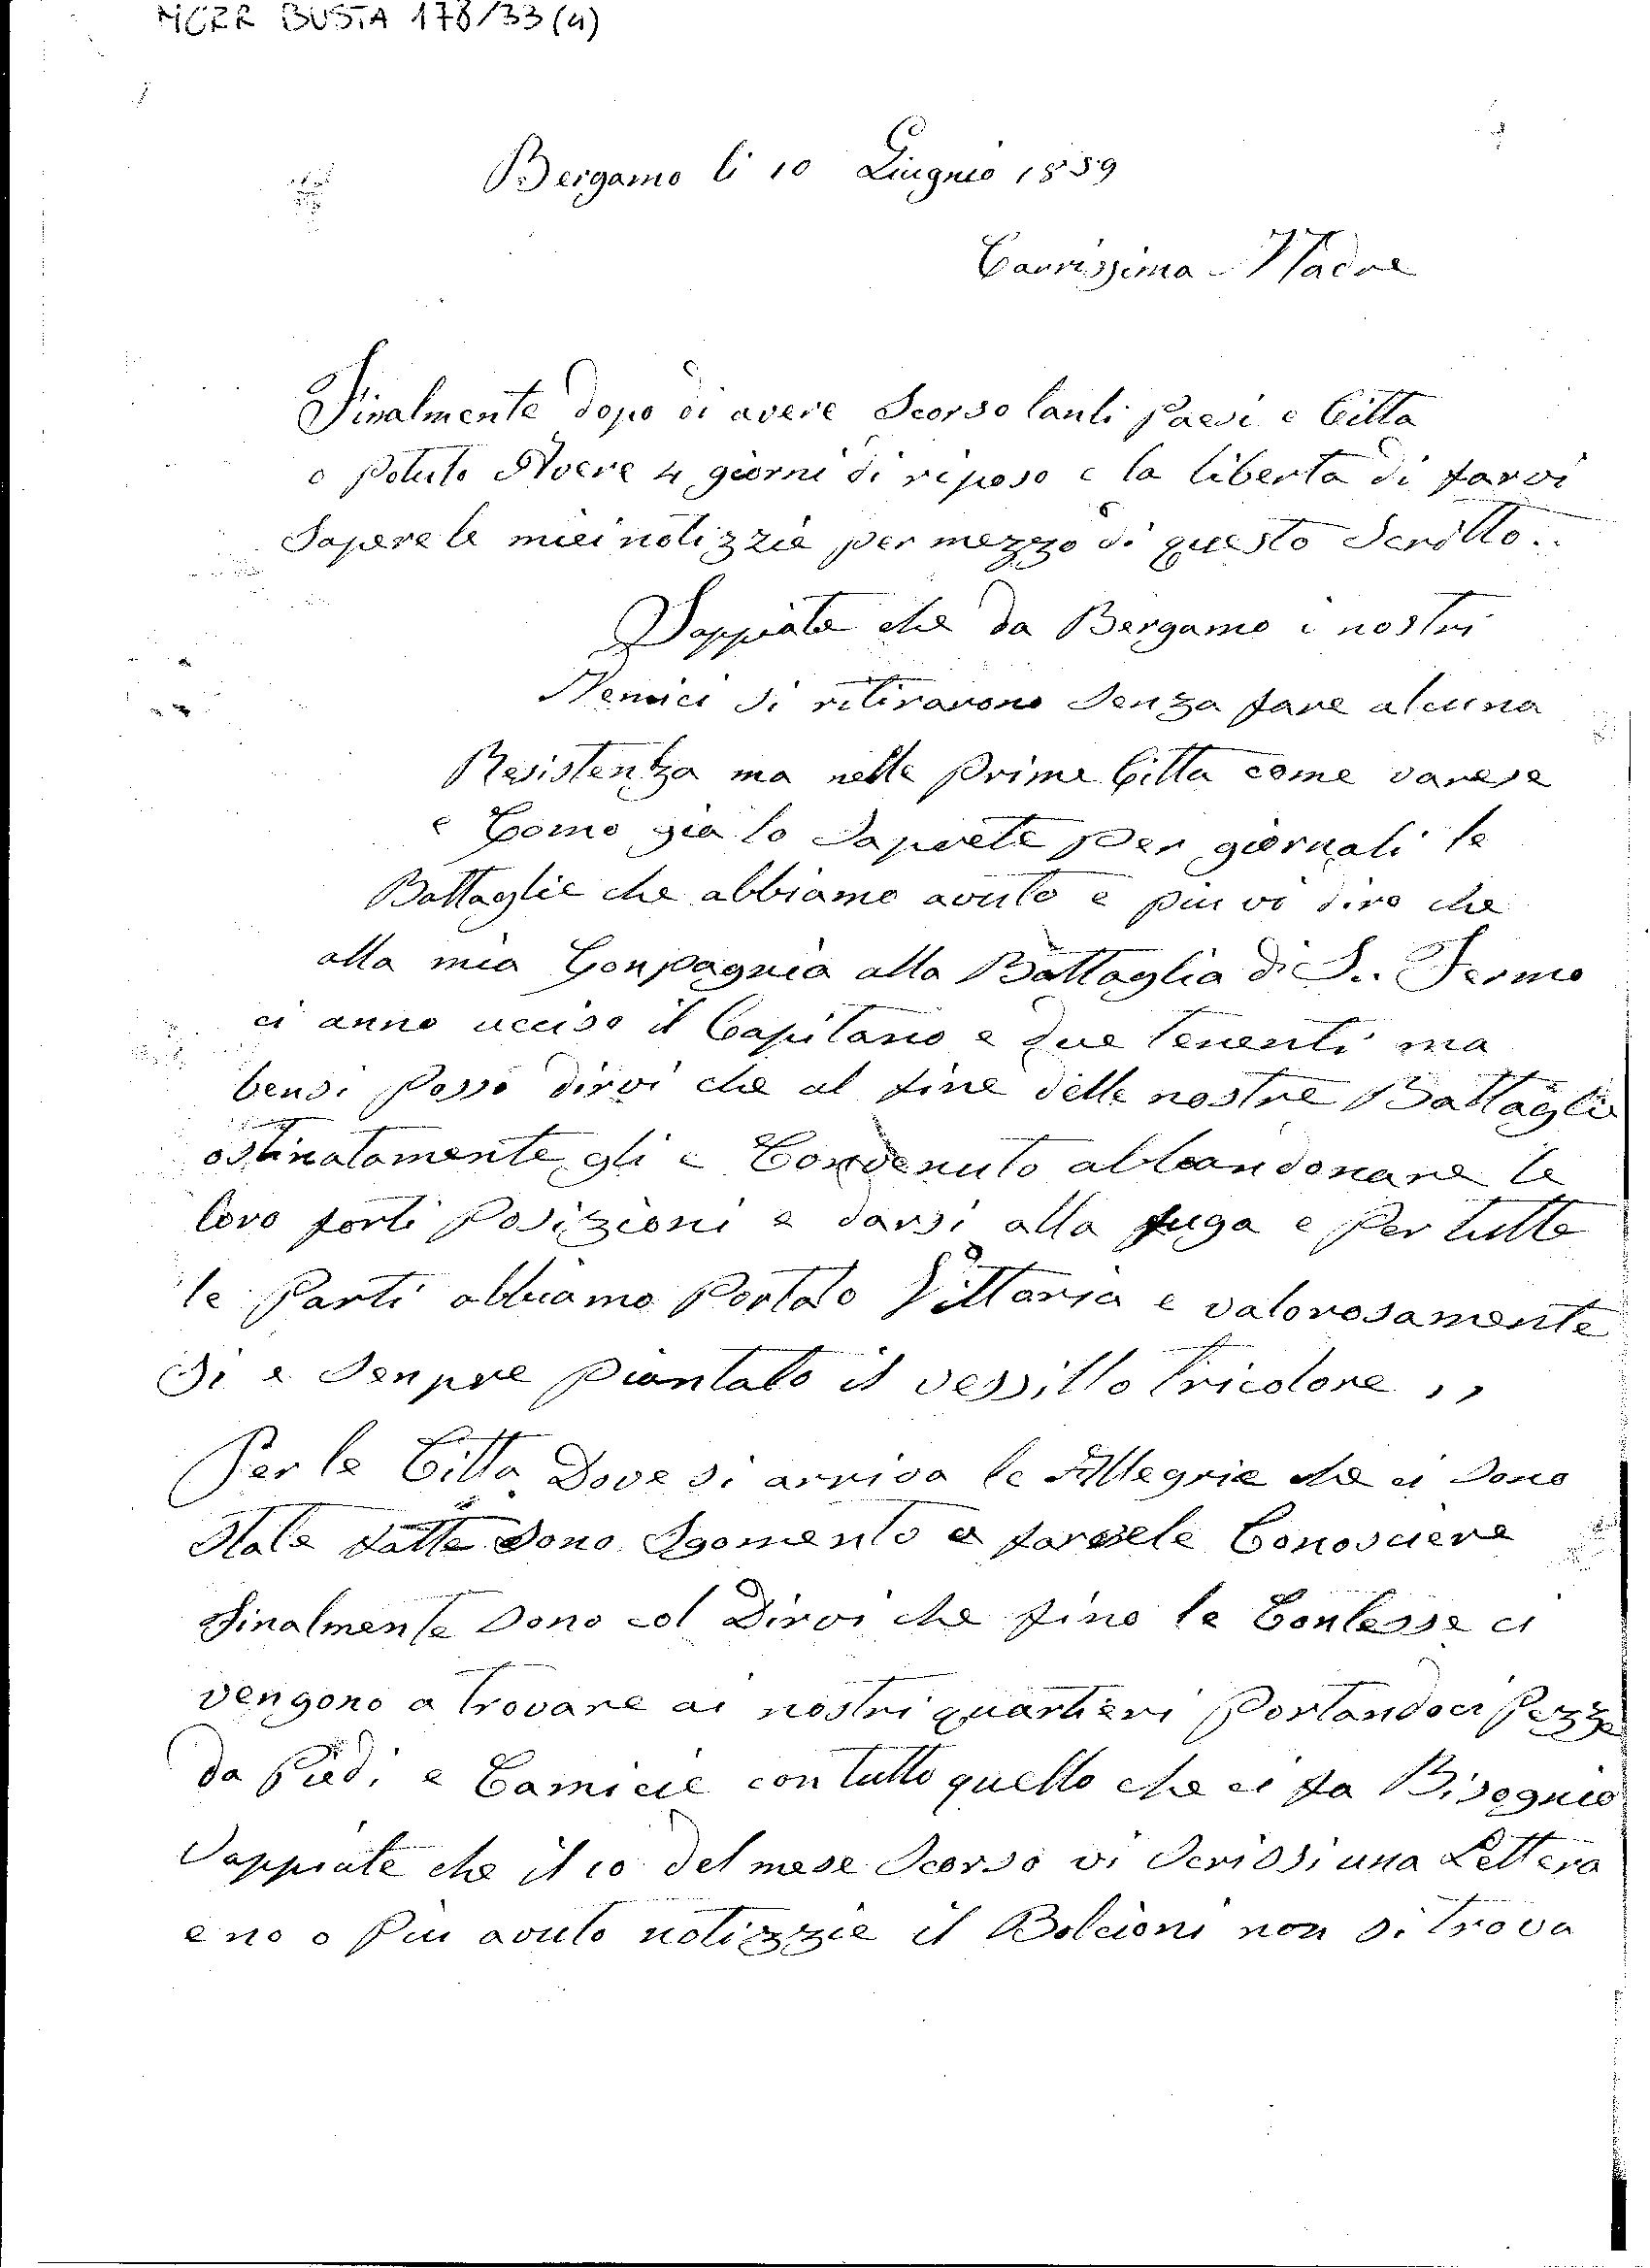 MCRR BUSTA 178/33(4)
Bergamo li 10 Giugnio 1859
Carrissima Madre
Finalmente dopo di avere Scorso tanti Paesi e Citta
o potuto Avere 4 giorni di riposo e la liberta di farvi
Sapere le miei notizzie per mezzo di questo Scritto..
Sappiate che da Bergamo i nostri
Nemici si ritirarono Senza fare alcuna
Resistenza ma nelle prime Citta come varese
e Como gia lo Saprete per giornali le
Battaglie che abbiamo avuto e piu vi diro che
alla mia Conpagnia alla Battaglia di S.. Fermo
ci anno ucciso il Capitano e due tenenti ma
bensi posso dirvi che al fine delle nostre Battaglie
ostinatamente gli e Convenuto abbandonare le
loro forti Posizioni e darsi alla fuga e Per tutte
le Parti abbiamo Portato Vittoria e valorosamente
Si e Senpre piantato il vessillo tricolore ,,
Per le Citta Dove si arriva le Allegrie che ci Sono
State fatte Sono Sgomento a farvele Conosciere
Finalmente Sono col Dirvi che fino le Contesse ci
vengono a trovare ai nostri quartieri Portandoci Pezze
da Piedi e Camicie con tutto quello che ci fa Bisognio
Sappiate che il 10 del mese Scorso vi Scrissi una Lettera
e no o Piu avuto notizzie il Bolcioni non si trova